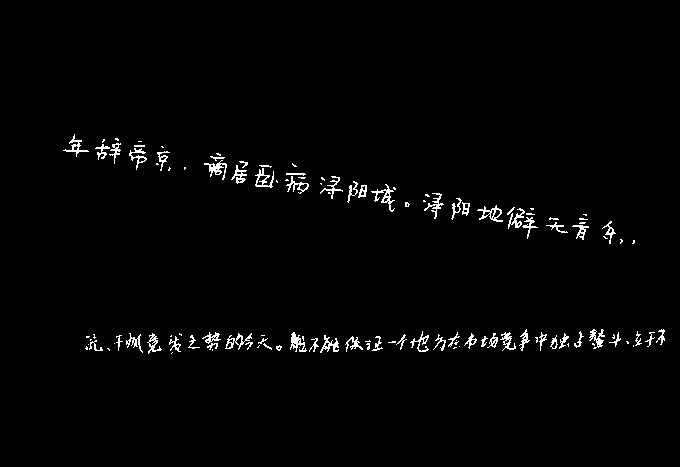 年辞帝京,谪居卧病浔阳城。浔阳地僻无音乐,
流、千帆竞发之势的今天。谁不能保证一个地方在市场竞争中独占鳌头、立于不